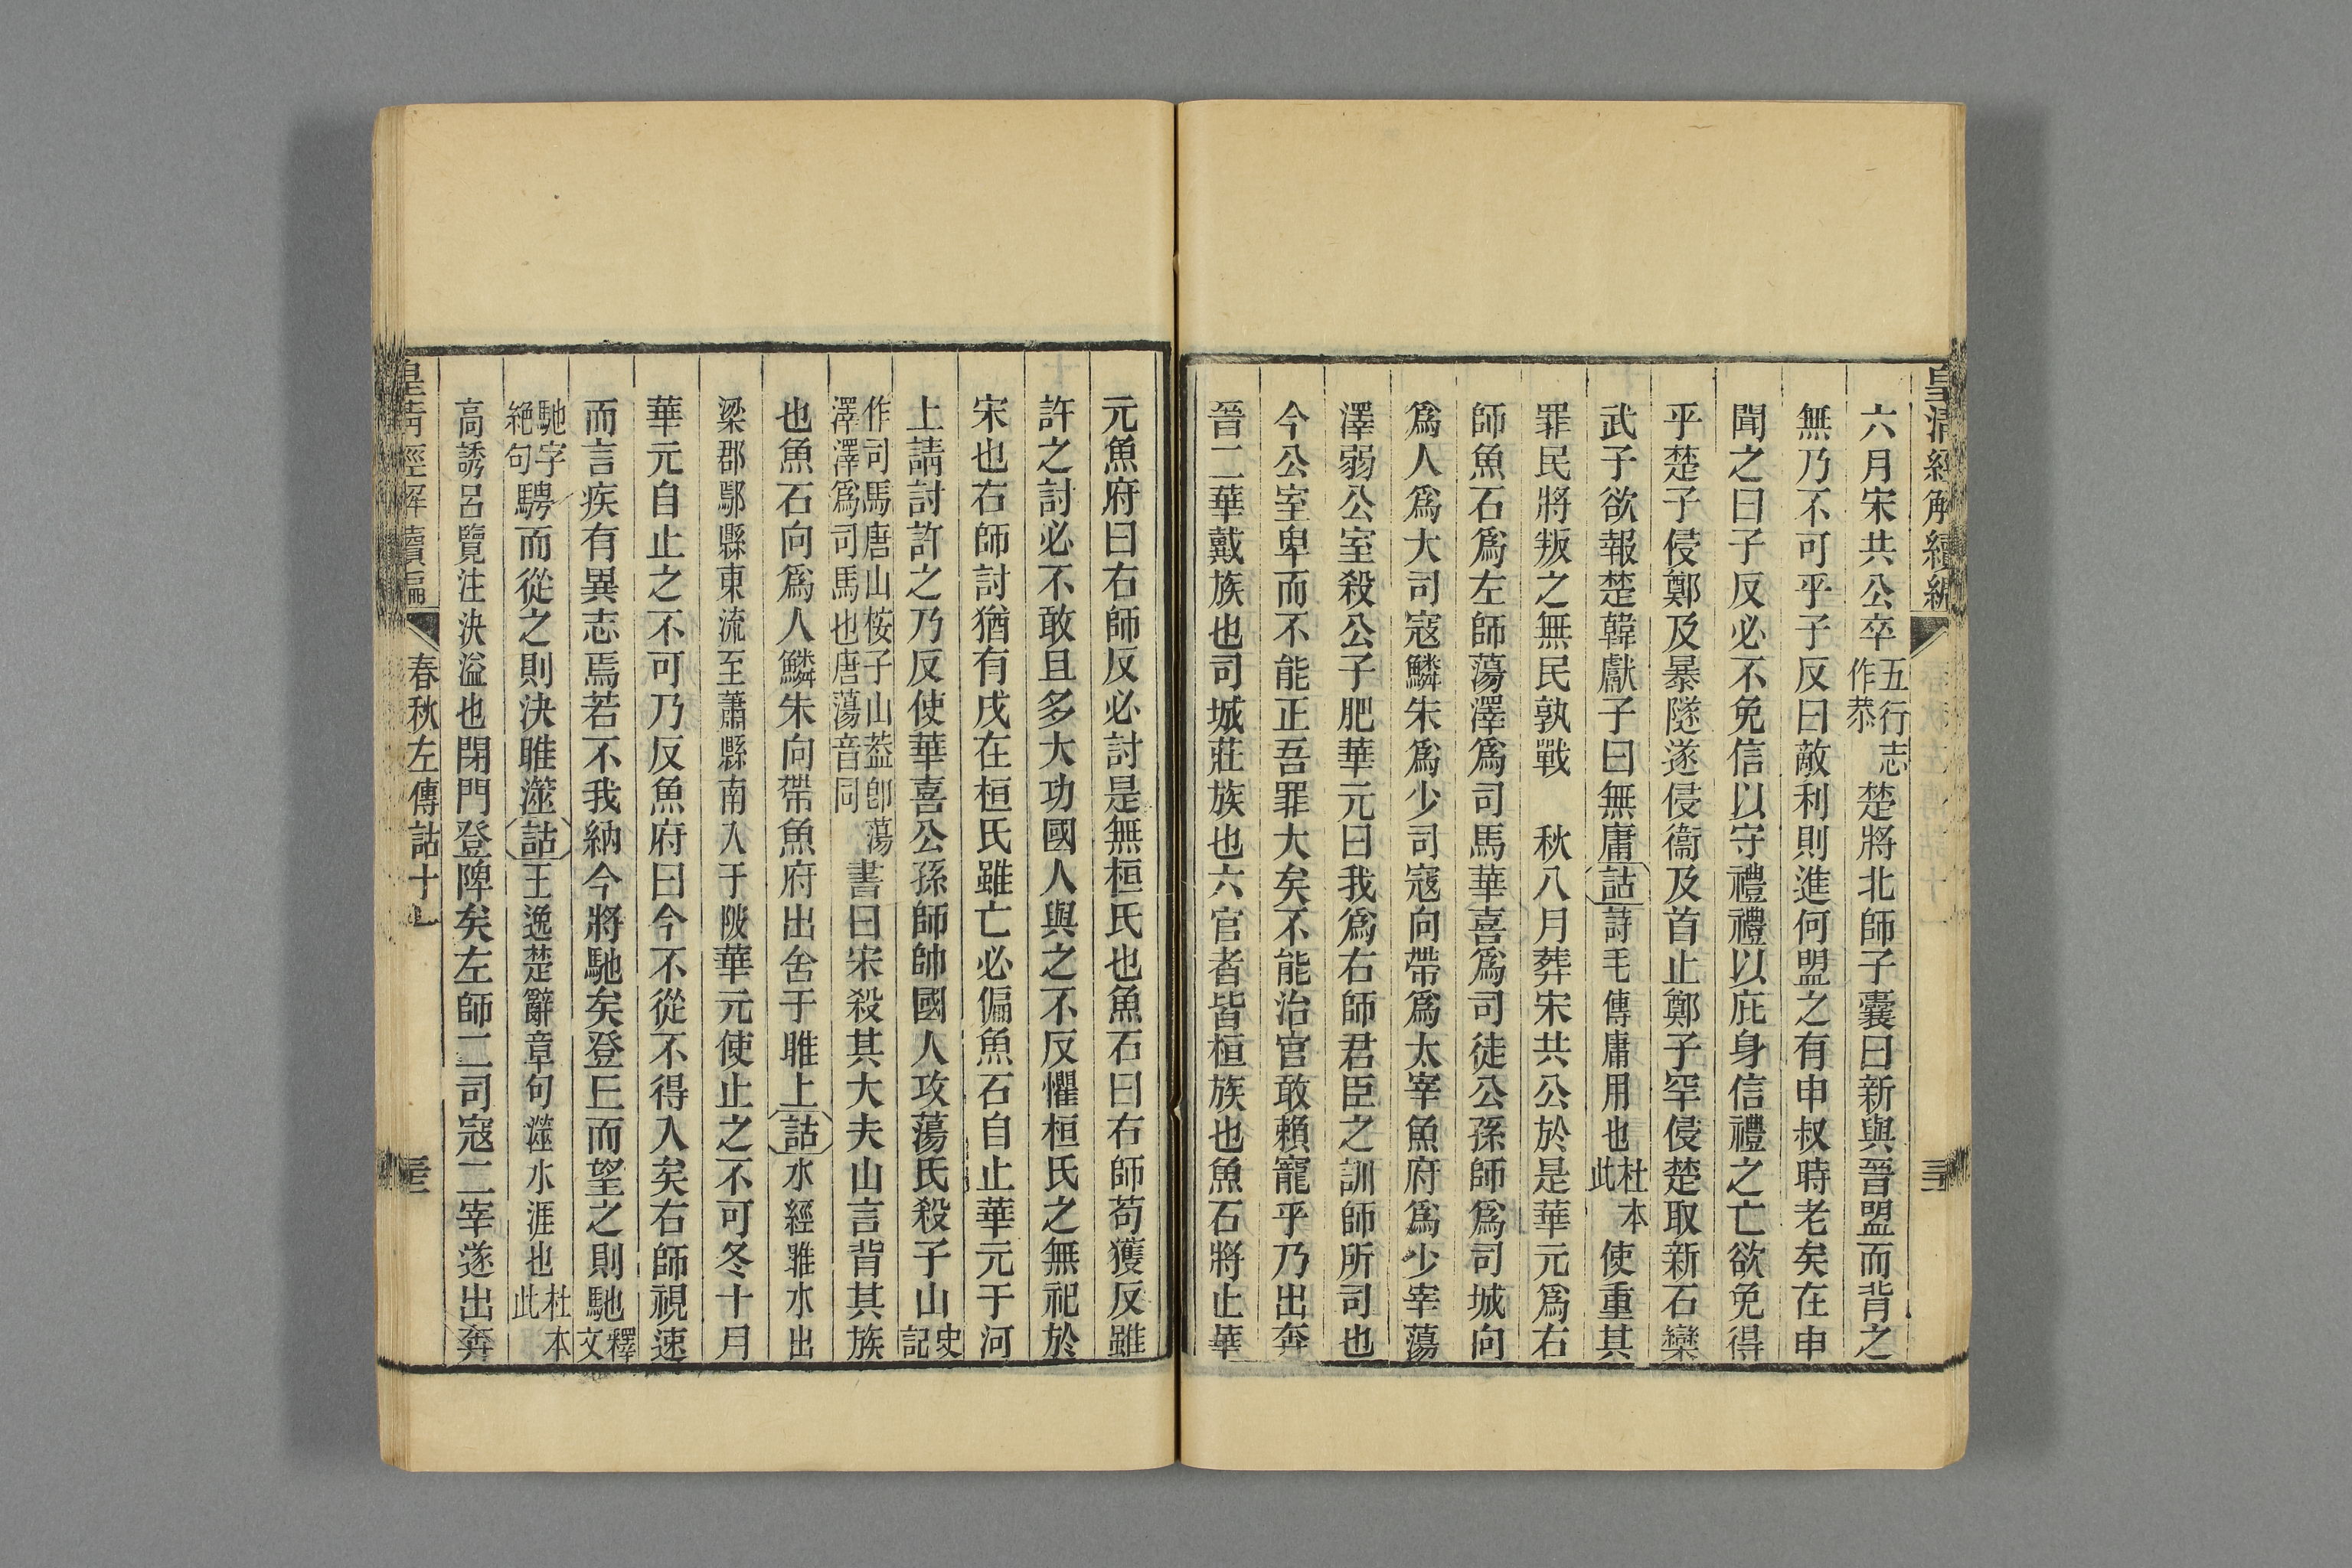 皇清經解續編
六月宋共公卒五行志作恭楚將北師子囊曰新與晉盟而背之
無乃不可乎子反曰敵利則進何盟之有申叔時老矣在申
聞之曰子反必不免信以守禮禮以庇身信禮之亡欲免得
乎楚子侵鄭及暴隧遂侵衞及首止鄭子罕侵楚取新石欒
武子欲報楚韓獻子曰無庸詁詩毛傳庸用也杜本此使重其
罪民將叛之無民孰戰 秋八月葬宋共公於是華元爲右
師魚石爲左師蕩澤爲司馬華喜爲司徒公孫師爲司城向
爲人爲大司寇鱗朱爲少司寇向帶爲太宰魚府爲少宰蕩
澤弱公室殺公子肥華元曰我爲右師君臣之訓師所司也
今公室卑而不能正吾罪大矣不能治官敢賴寵乎乃出奔
晉二華戴族也司城莊族也六官者皆桓族也魚石將止華
元魚府曰右師反必討是無桓氏也魚石曰右師苟獲反雖
許之討必不敢且多大功國人與之不反懼桓氏之無祀於
宋也右師討猶有戌在桓氏雖亡必偏魚石自止華元于河
上請討許之乃反使華喜公孫師帥國人攻蕩氏殺子山史記
作司馬唐山桉子山葢卽蕩澤澤爲司馬也唐蕩音同書曰宋殺其大夫山言背其族
也魚石向爲人鱗朱向帶魚府出舍于睢上詁水經睢水出
梁郡鄢縣東流至蕭縣南入于陂華元使止之不可冬十月
華元自止之不可乃反魚府曰今不從不得入矣右師視速
而言疾有異志焉若不我納今將馳矣登丘而望之則馳釋文
馳字絕句騁而從之則決睢澨詁王逸楚辭章句澨水涯也杜本此
高誘呂覽注決溢也閉門登陴矣左師二司寇二宰遂出奔
皇清經解續編 春秋左傳詁十